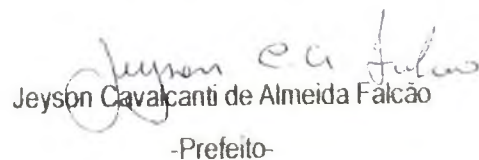 Jeyson C. A. Falcão
Jeyson Cavalcanti de Almeida Falcão
-Prefeito-